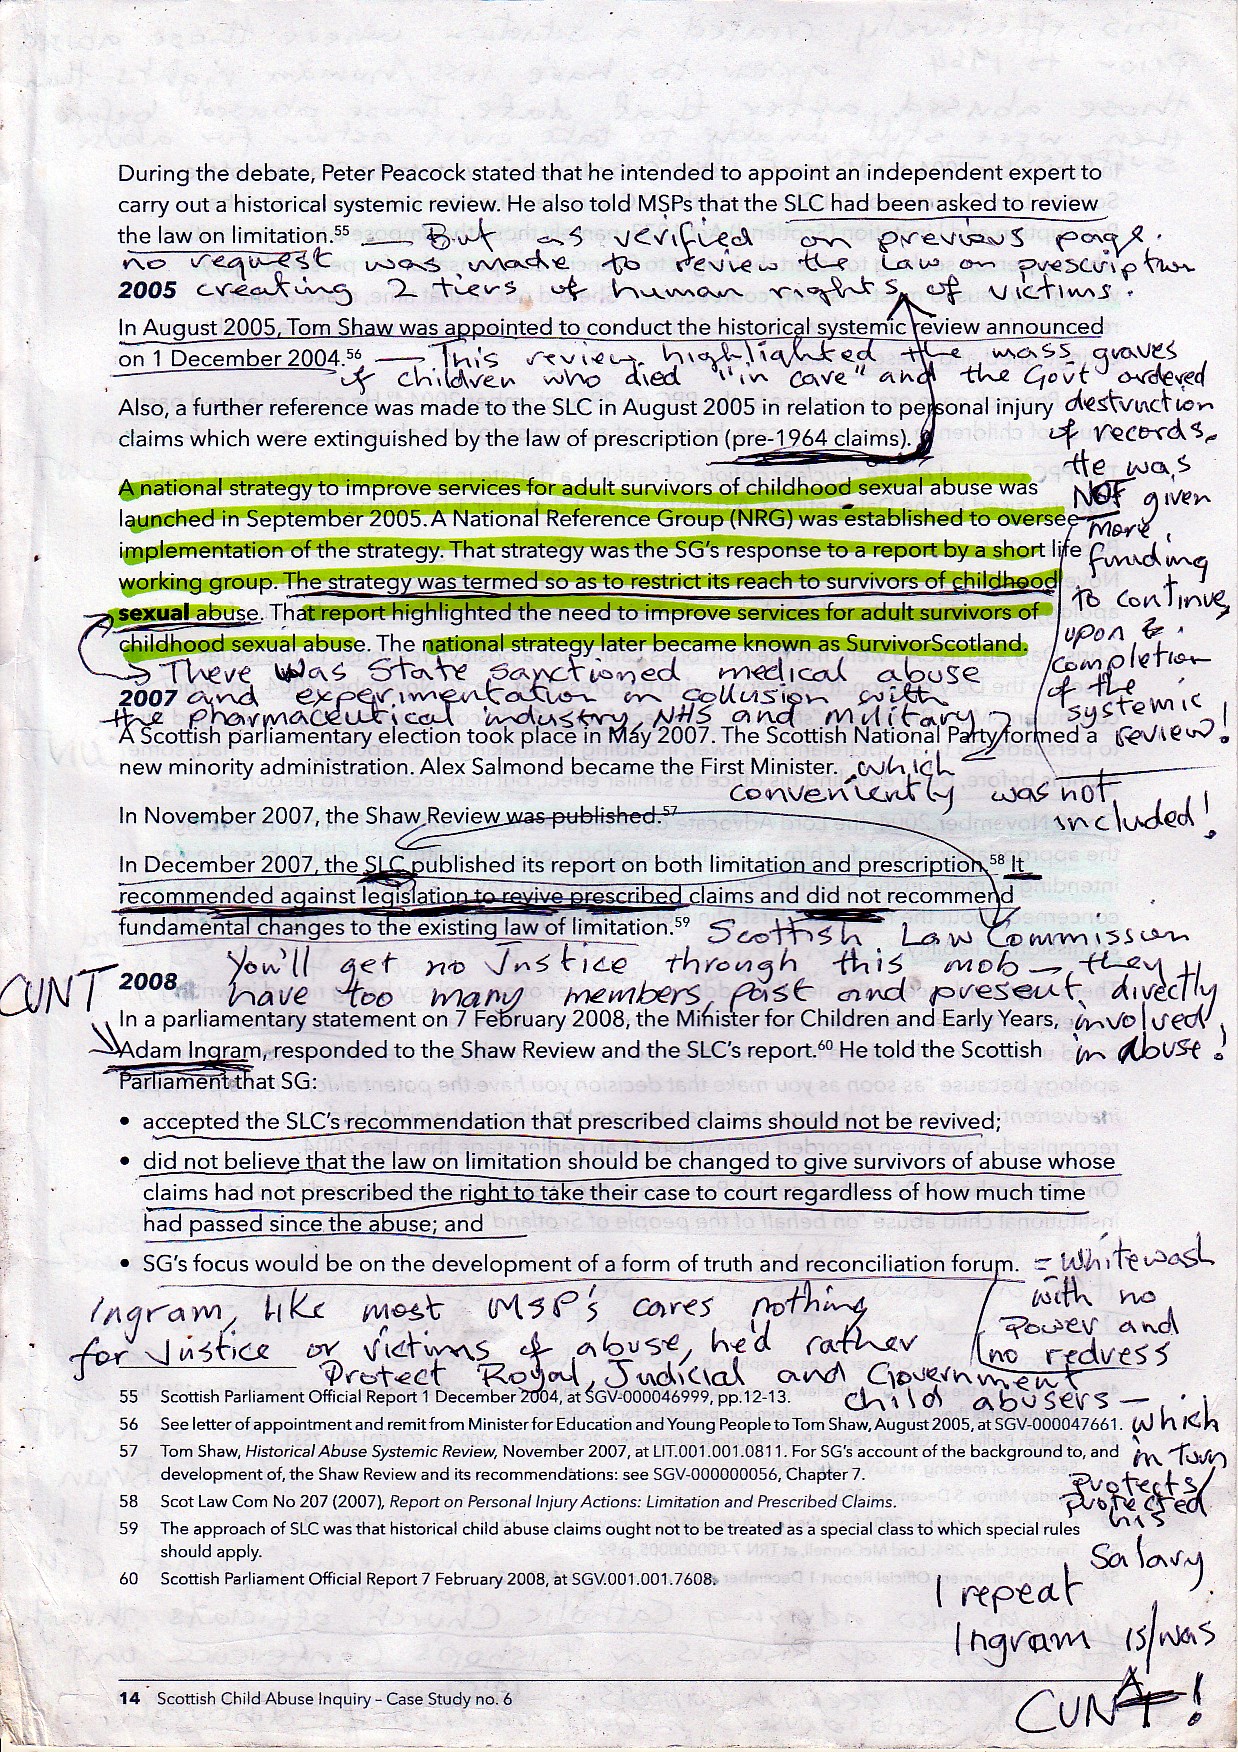 During the debate, Peter Peacock stated that he intended to appoint an independent expert to
carry out a historical systemic review. He also told MSPs that the SLC had been asked to review
the law on limitation.55 — But as verified on previous page.
no request was made to review the law on prescription
2005 creating 2 tiers of human rights of victims.
In August 2005, Tom Shaw was appointed to conduct the historical systemic review announced
on 1 December 2004.56 — This review highlighted the mass graves
of children who died "in care" and the Govt ordered
destruction
of records.
Also, a further reference was made to the SLC in August 2005 in relation to personal injury
claims which were extinguished by the law of prescription (pre-1964 claims).
He was
NOT given
more
funding
to continue,
upon
completion
of the
systemic
review!
A national strategy to improve services for adult survivors of childhood sexual abuse was
launched in September 2005. A National Reference Group (NRG) was established to oversee
implementation of the strategy. That strategy was the SG's response to a report by a short life
working group. The strategy was termed so as to restrict its reach to survivors of childhood
sexual abuse. That report highlighted the need to improve services for adult survivors of
childhood sexual abuse. The national strategy later became known as SurvivorScotland.
There was State sanctioned medical abuse
2007 and experimentation in collusion with
the pharmaceutical industry, NHS and military
A Scottish parliamentary election took place in May 2007. The Scottish National Party formed a
new minority administration. Alex Salmond became the First Minister. which
conveniently was not
included!
In November 2007, the Shaw Review was published.57
In December 2007, the SLC published its report on both limitation and prescription.58 It
recommended against legislation to revive prescribed claims and did not recommend
fundamental changes to the existing law of limitation.59 Scottish Law Commission
You'll get no Justice through this mob — they
CUNT 2008 have too many members, past and present, directly
involved
in abuse!
In a parliamentary statement on 7 February 2008, the Minister for Children and Early Years,
Adam Ingram, responded to the Shaw Review and the SLC's report.60 He told the Scottish
Parliament that SG:
• accepted the SLC's recommendation that prescribed claims should not be revived;
• did not believe that the law on limitation should be changed to give survivors of abuse whose
claims had not prescribed the right to take their case to court regardless of how much time
had passed since the abuse; and
• SG's focus would be on the development of a form of truth and reconciliation forum. = Whitewash
with no
Power and
no redress
Ingram, like most MSP's cares nothing
for Justice or victims of abuse, he'd rather
Protect Royal, Judicial and Government
child abusers —
which
in turn
protects/
protected
his
salary
55 Scottish Parliament Official Report 1 December 2004, at SGV-000046999, pp.12-13.
56 See letter of appointment and remit from Minister for Education and Young People to Tom Shaw, August 2005, at SGV-000047661.
57 Tom Shaw, Historical Abuse Systemic Review, November 2007, at LIT.001.001.0811. For SG's account of the background to, and
development of, the Shaw Review and its recommendations: see SGV-000000056, Chapter 7.
58 Scot Law Com No 207 (2007), Report on Personal Injury Actions: Limitation and Prescribed Claims.
59 The approach of SLC was that historical child abuse claims ought not to be treated as a special class to which special rules
should apply.
60 Scottish Parliament Official Report 7 February 2008, at SGV.001.001.7608.
I repeat
Ingram is/was
A
CUNT!
14 Scottish Child Abuse Inquiry – Case Study no. 6